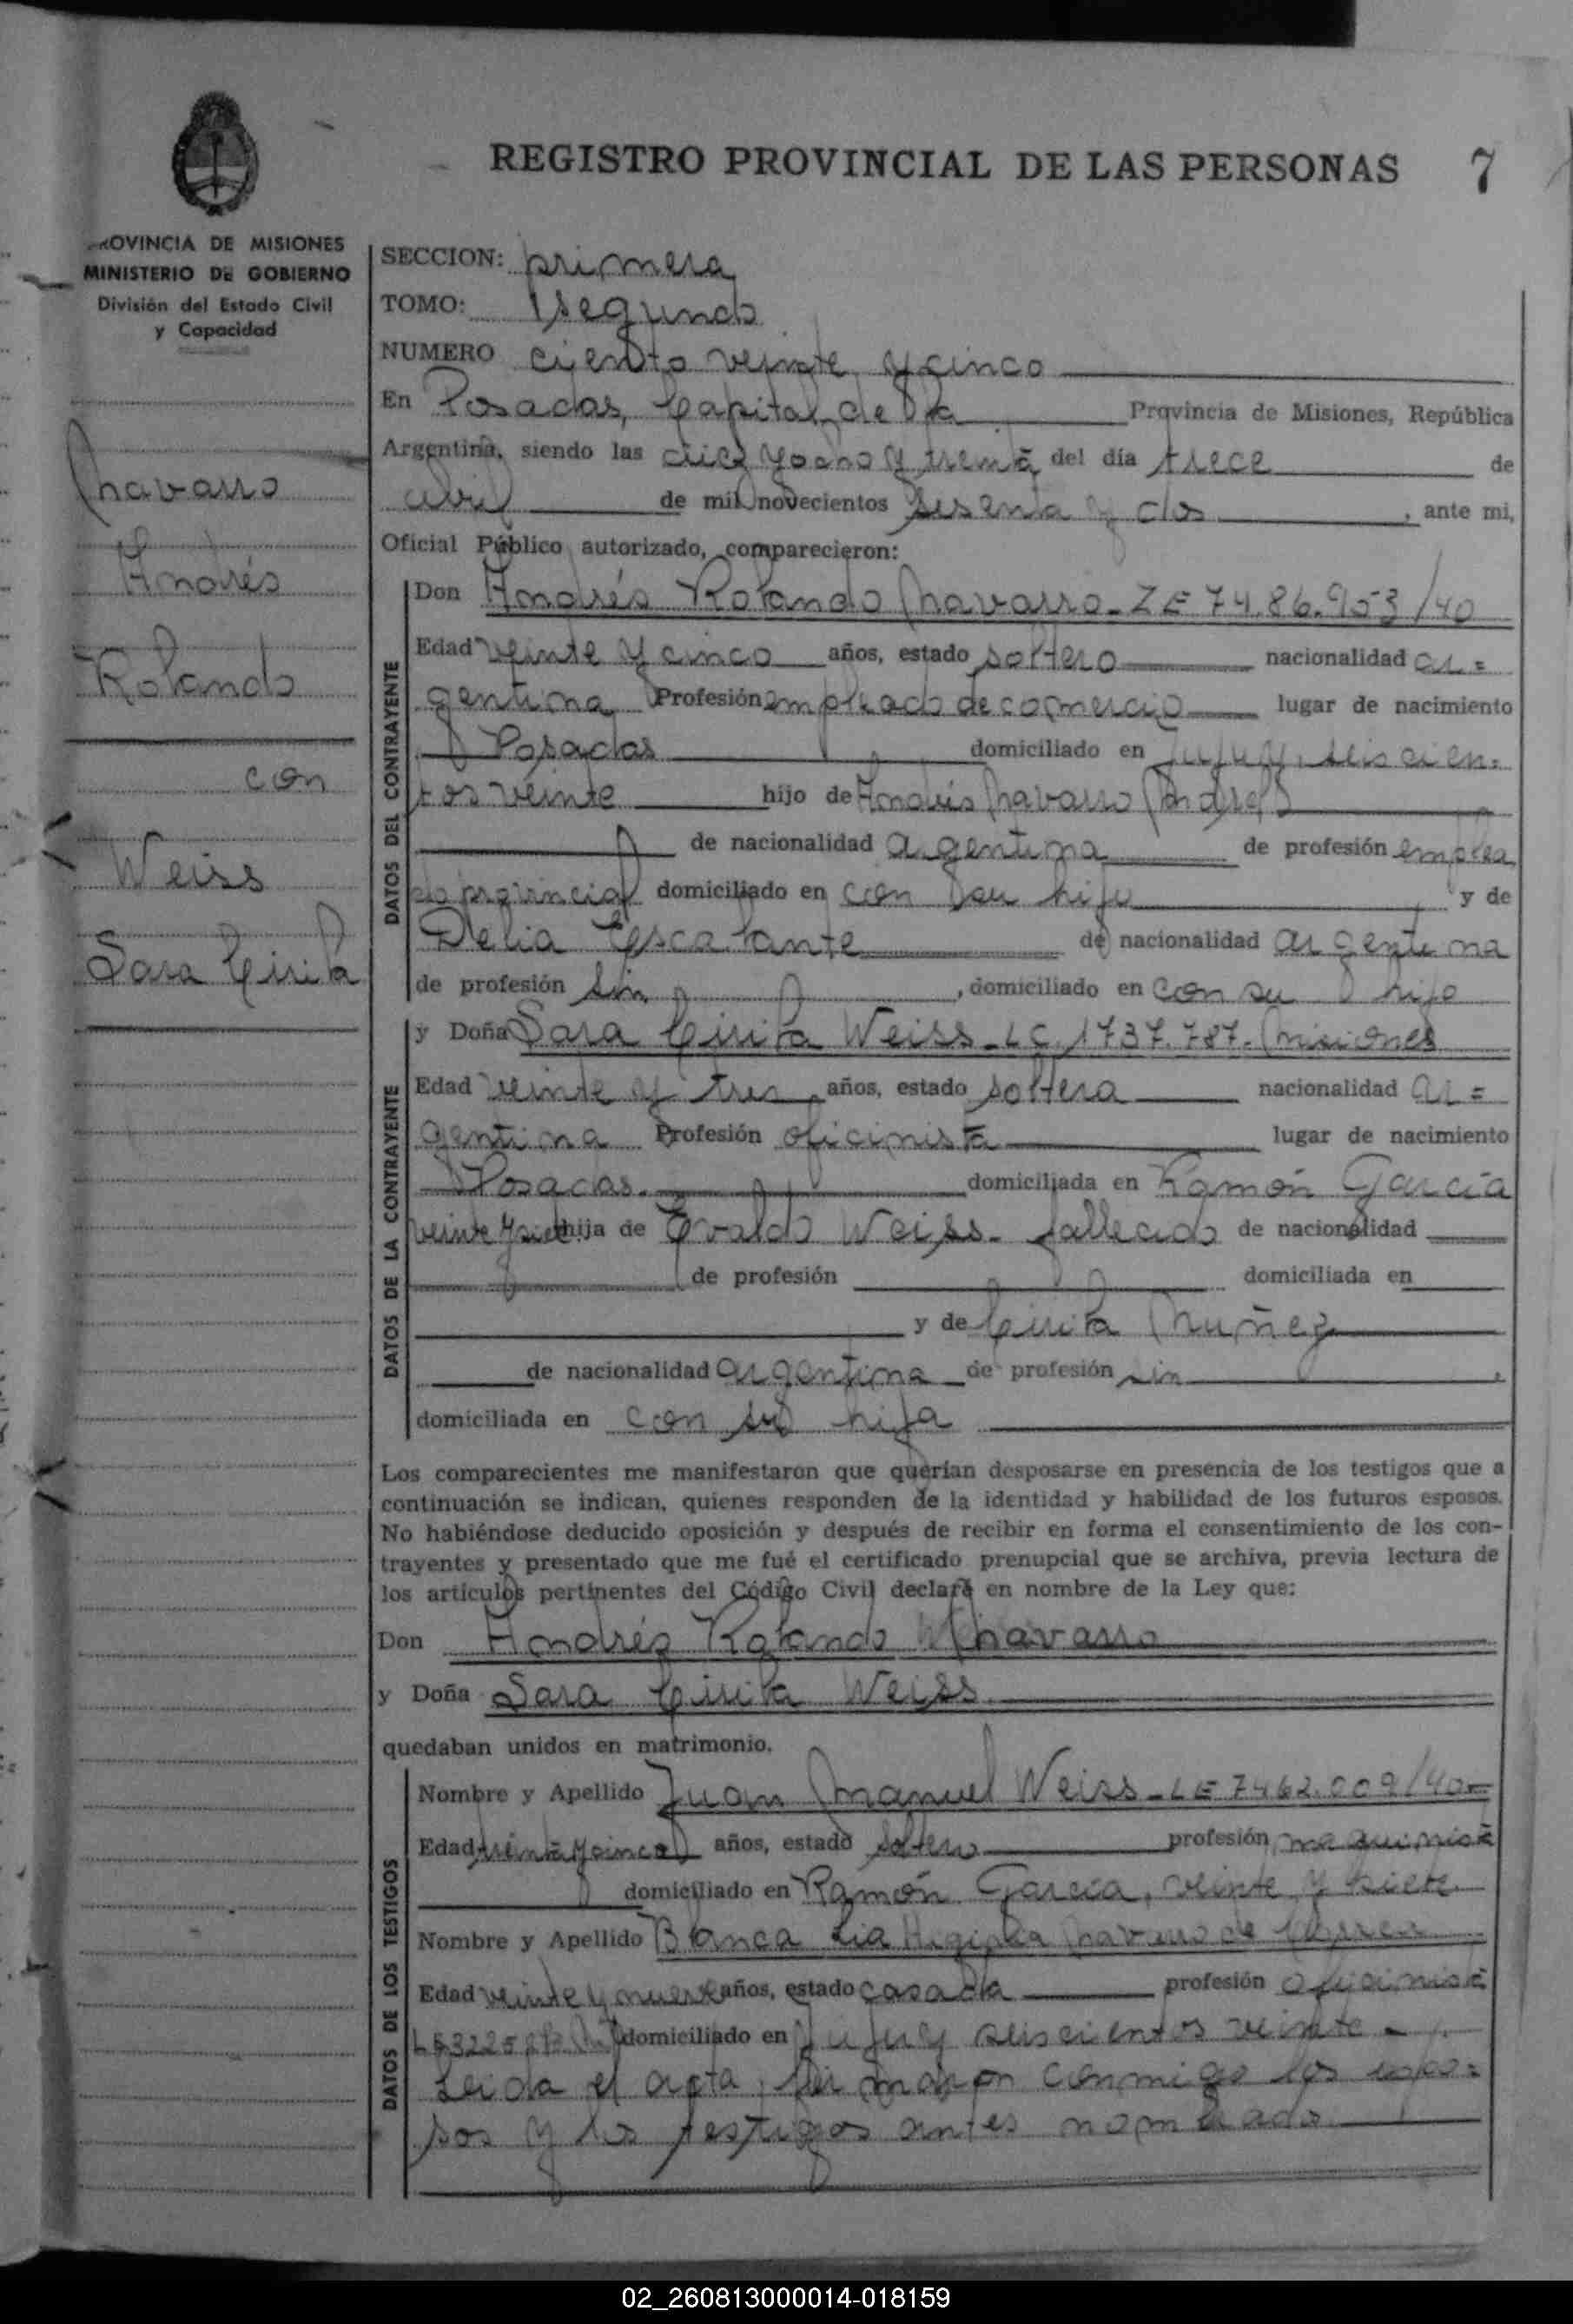 REGISTRO PROVINCIAL DE LAS PERSONAS 7
PROVINCIA DE MISIONES
MINISTERIO DE GOBIERNO
División del Estado Civil
y Capacidad
Navarro
Andrés
Rolando
con
Weiss
Sara Cirila
SECCION: primera
TOMO: segundo
NUMERO ciento veinte y cinco
En Posadas, Capital de la Provincia de Misiones, República
Argentina, siendo las diez y ocho y treinta del día trece de
abril de mil novecientos sesenta y dos, ante mi,
Oficial Público autorizado, comparecieron:
DATOS DEL CONTRAYENTE
Don Andrés Rolando Navarro - LE 74.86.953/40
Edad veinte y cinco años, estado soltero nacionalidad ar=
gentina Profesión empleado de comercio lugar de nacimiento
Posadas domiciliado en Jujuy, seiscien=
tos veinte hijo de Andrés Navarro
de nacionalidad argentina de profesión emplea
do provincial domiciliado en con su hijo y de
Delia Escalante de nacionalidad argentina
de profesión sin, domiciliado en con su hijo
DATOS DE LA CONTRAYENTE
y Doña Sara Cirila Weiss - LC. 1737.787 - Misiones
Edad veinte y tres años, estado soltera nacionalidad ar=
gentina Profesión oficinista lugar de nacimiento
Posadas. domiciliada en Ramón García
veinte y siete hija de Evaldo Weiss - fallecido de nacionalidad
de profesión domiciliada en
y de Cirila Nuñez
de nacionalidad argentina de profesión sin,
domiciliada en con su hija
Los comparecientes me manifestaron que querían desposarse en presencia de los testigos que a
continuación se indican, quienes responden de la identidad y habilidad de los futuros esposos.
No habiéndose deducido oposición y después de recibir en forma el consentimiento de los con-
trayentes y presentado que me fué el certificado prenupcial que se archiva, previa lectura de
los artículos pertinentes del Código Civil declaré en nombre de la Ley que:
Don Andrés Rolando Navarro
y Doña Sara Cirila Weiss
quedaban unidos en matrimonio.
DATOS DE LOS TESTIGOS
Nombre y Apellido Juan Manuel Weiss - LE 7462.009/40=
Edad treinta y cinco años, estado soltero profesión maquinista
domiciliado en Ramón García, veinte y siete
Nombre y Apellido Blanca Lia Higinia Navarro de
Edad veinte y nueve años, estado casada profesión oficinista
domiciliado en Jujuy seiscientos veinte -
Leida el acta, firmaron conmigo los espo=
sos y los testigos antes nombrados
02_260813000014-018159